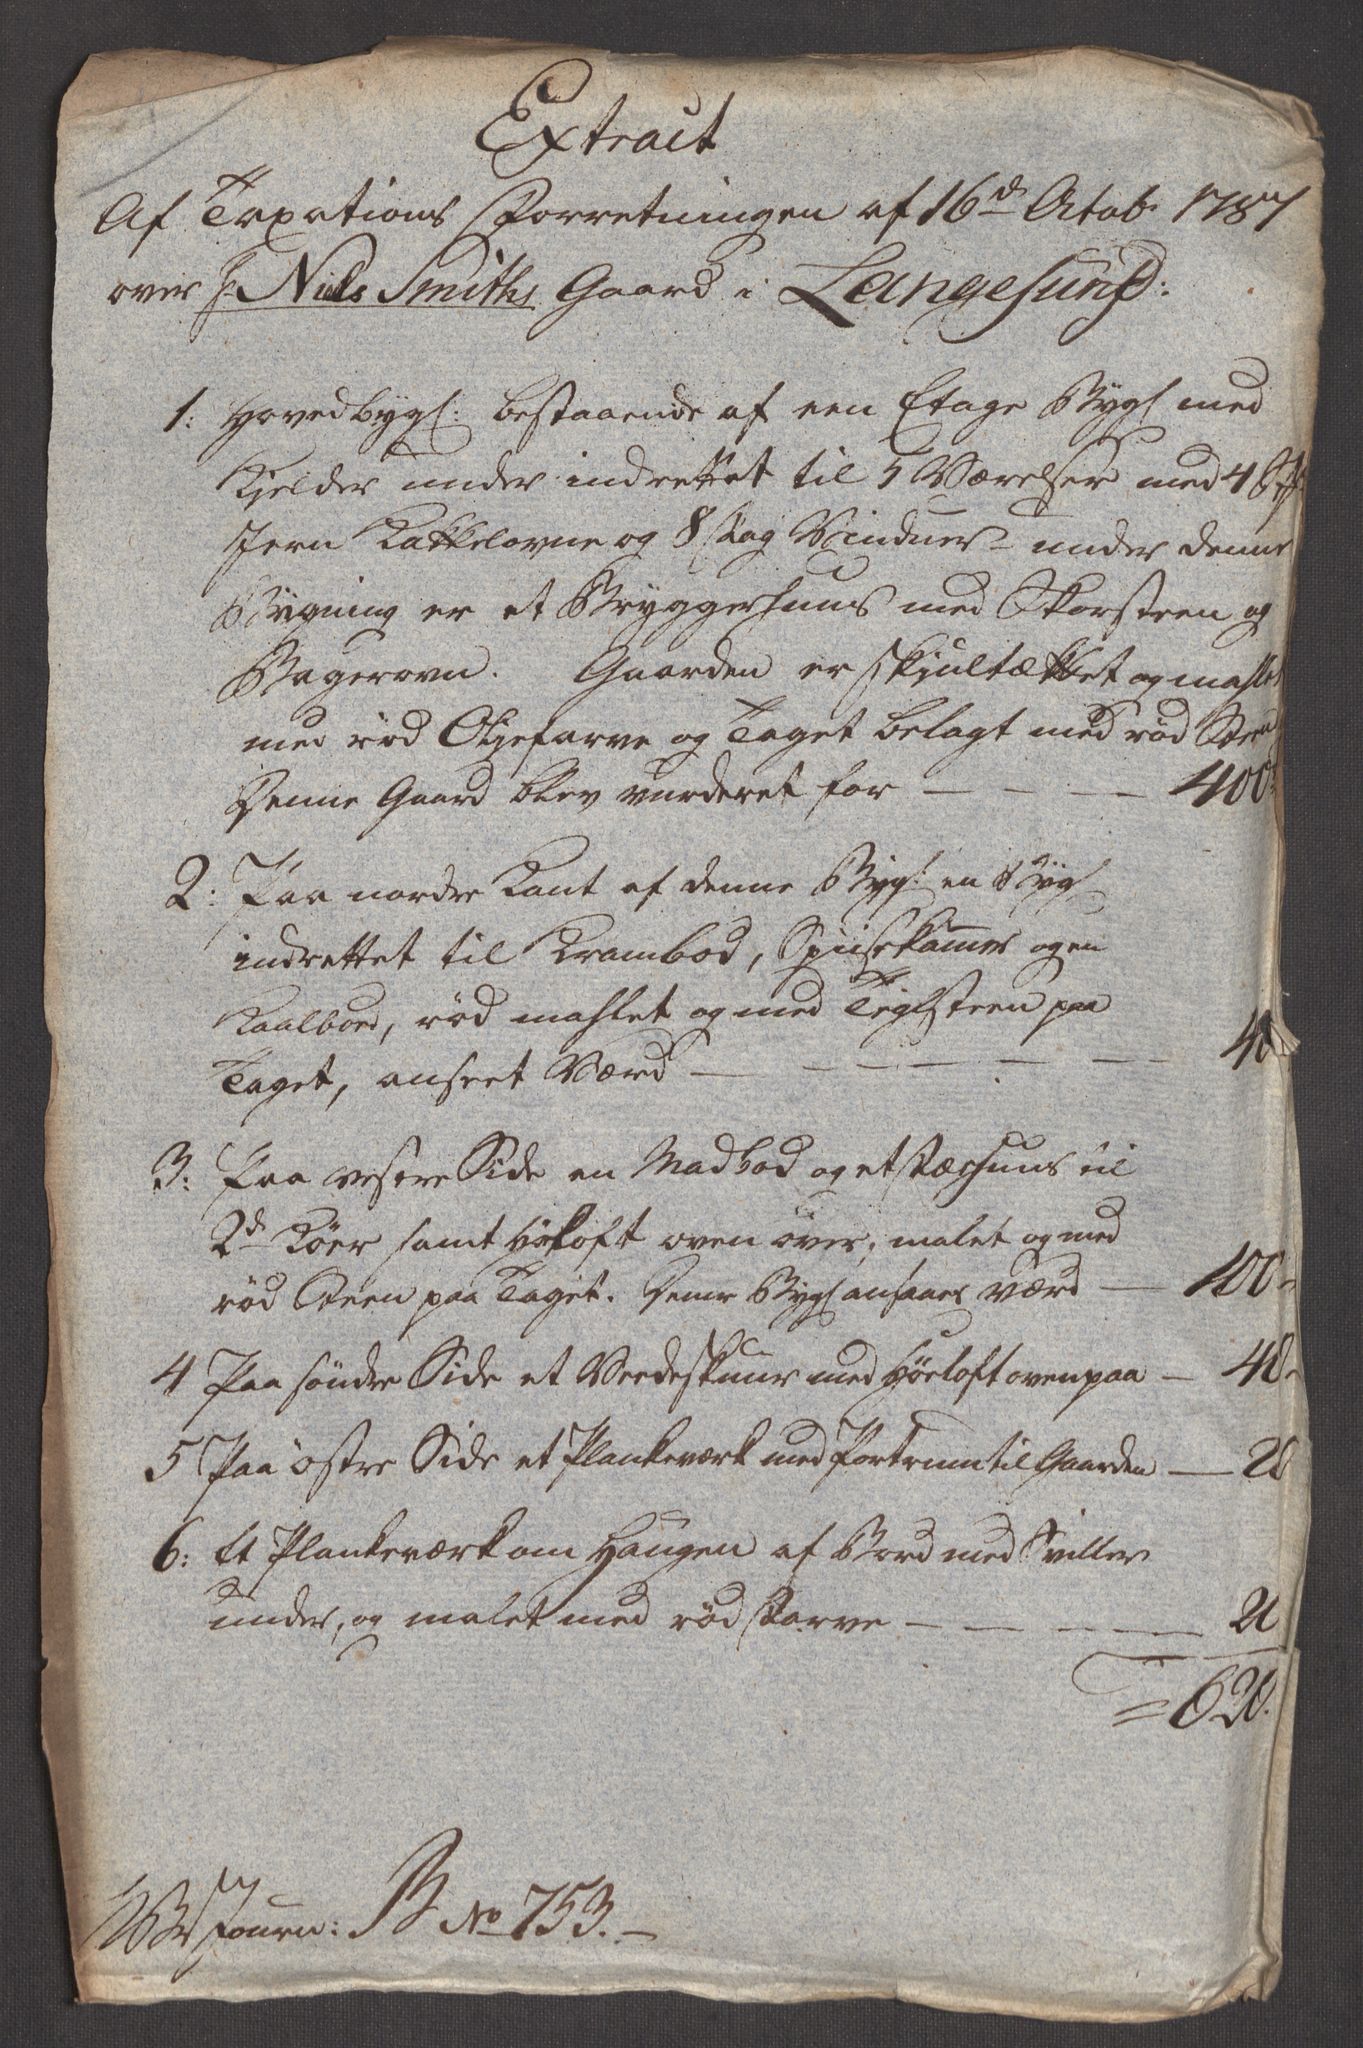 Extract
Af Taxations Forretningen af 16d Octob. 1787
over Hr Niels Smiths Gaard i Langesund:
1: Hovedbygn: bestaaende af een Etage Bygn med
Kjelder under indrettet til 5 Værelser med 4 St:
Jern Kakkelovne og 8 fag Vinduer - under denne
Bygning er et Bryggerhuus med Skorsteen og
Bagerovn. Gaarden er skjultækket og mahlet
med rød Oljefarve og Taget belagt med rød Steen
Denne Gaard blev vurderet for — — — — 400
2: Paa nordre Kant af denne Bygn: en Bygn
indrettet til Krambod, Spiisekammer og en
Kaalboed, rød mahlet og med Teglsteen paa
Taget, anseet Værd — — — — — — 40
3: Paa vestre Side en Madbod og et fæehuus til
2d Køer samt Høeloft oven over, malet og med
rød Steen paa Taget. Denne Bygn ansaaes værd — 100
4 Paa søndre Side et Veedeskuur med Høeloft ovenpaa — 40
5 Paa østre Side et Plankeværk med Portrum til Gaarden — 20
6: et Plankeværk om Haugen af Bord med Sviller
under, og malet med rød farve — — — — — 20
= 620.
Journ: B No 753. —